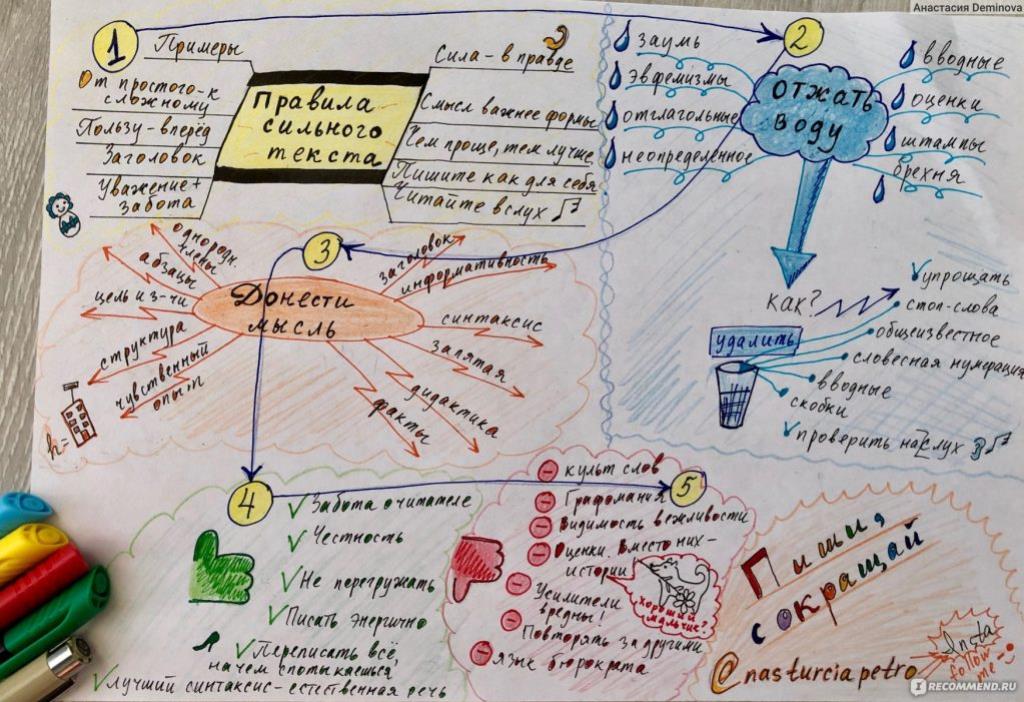 Анастасия Deminova
1
Примеры
От простого-к
сложному
Пользу-вперёд
Заголовок
Уважение+
забота
Правила
сильного
текста
Сила-в правде
Смысл важнее формы
Чем проще, тем лучше
Пишите как для себя
Читайте вслух
2
Отжать
воду
заумь
эвфемизмы
отглагольные
неопределённое
вводные
оценки
штампы
брехня
как?
удалить
упрощать
стоп-слова
общеизвестное
словесная нумерация
вводные
скобки
проверить на слух
3
Донести
мысль
однородн.
члены
абзацы
цель из-чи
структура
чувственный
опыт
h=
заголовок
информативность
синтаксис
запятая
дидактика
факты
4
Забота о читателе
Честность
Не перегружать
Писать энергично
Переписать всё,
на чем спотыкаешься
Лучший синтаксис-естественная речь
5
культ слов
Графомания
Видимость вежливости
Оценки. Вместо них-
истории!
хороший
мальчик?
Усилители
вредны!
Повторять за другими
язык бюрократа
Пиши,
сокращай
@nasturciapetro
Insta
follow
me
IRECOMMEND.RU